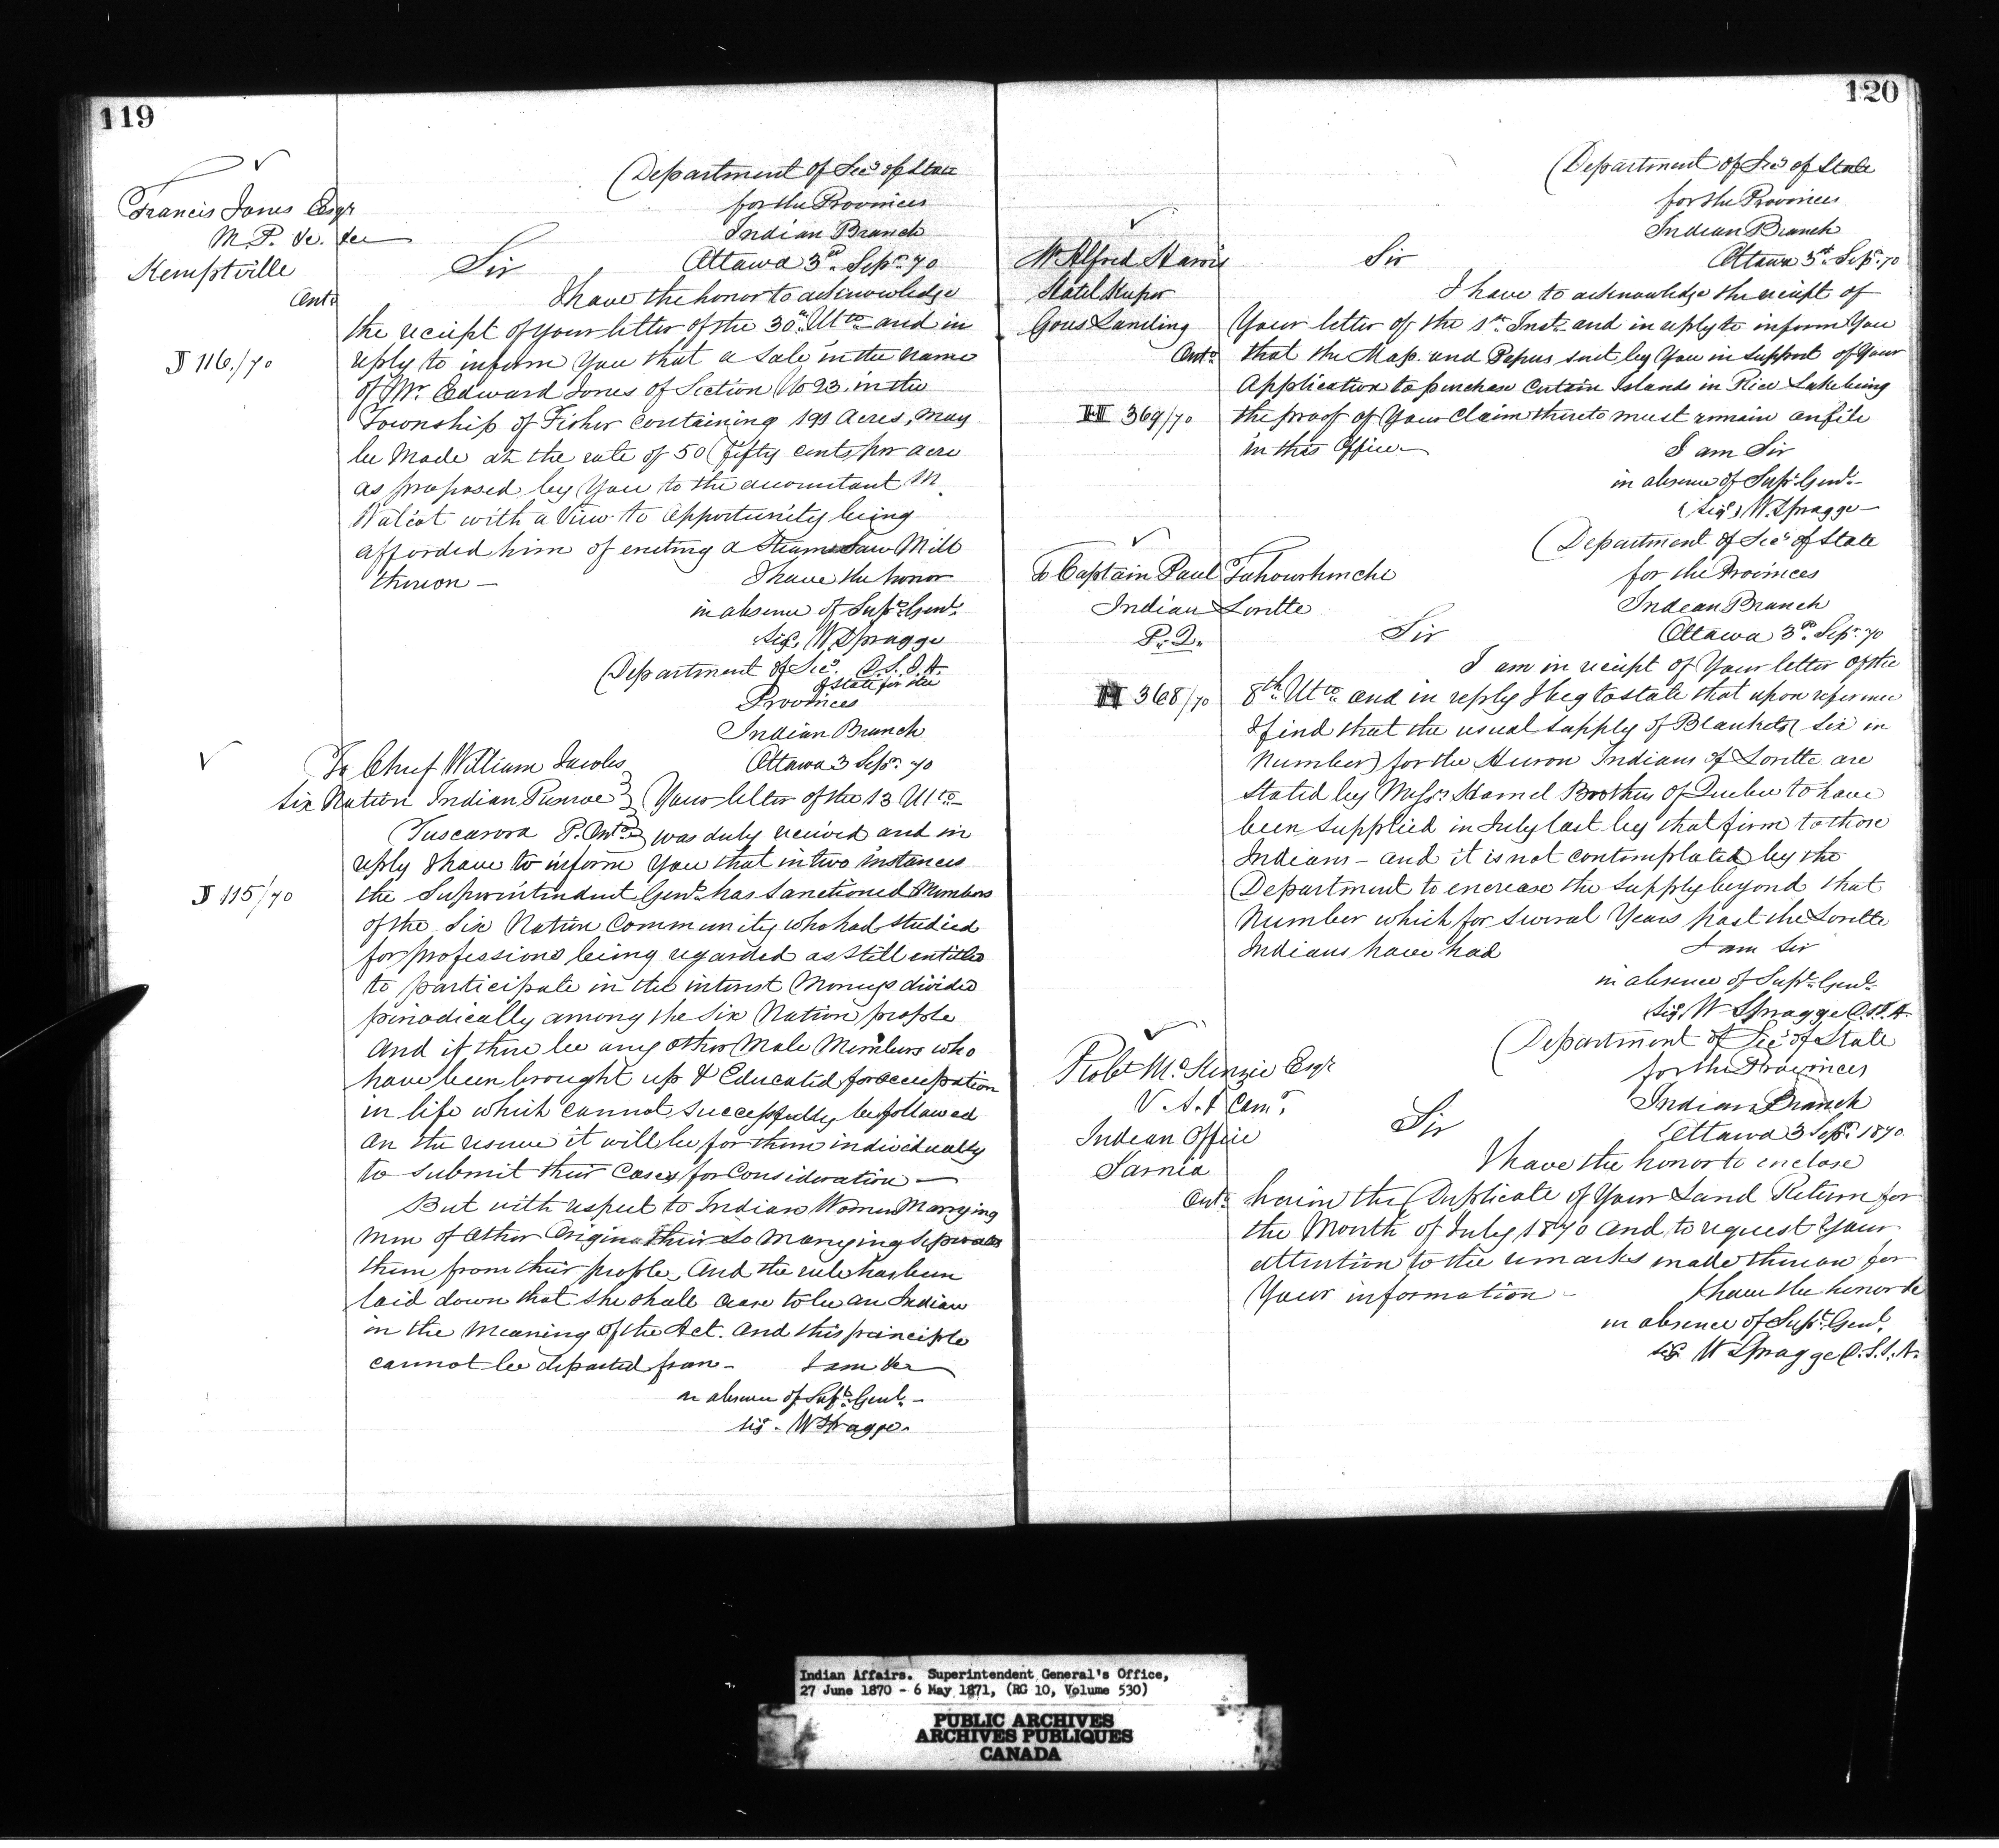 119
Department of Secy of State
for the Provinces
Indian Branch
Ottawa 3rd Sepr 70
Francis Jones Esqr
M.P. &c. &c
Kemptville
Onto
J 116/70
Sir
I have the honor to acknowledge
the reciept of your letter of the 30th Ulto and in
reply to inform You that a Sale in the name
of Mr. Edward Jones of Section No 23. in the
Township of Fisher containing 191 Acres, may
be Made at the rate of 50 (fifty cents per acre
as proposed by You to the accountant M.
with a View to Opportunity being
afforded him of erecting a Steam Saw Mill
thereon —
I have the honor
in absence of Supt Genl.
Sig. W Spragge
D.S.I.A.
Department of Secy.
of State for the
Provinces
Indian Branch
Ottawa 3 Sepr. 70
To Chief William Jacobs
Six Nation Indian Reserve
Tuscarora P. Onto
J 115/70
Your letter of the 13 Ulto
was duly received and in
reply I have to inform You that in two instances
the Superintendent Genl. has Sanctioned Members
of the Six Nation Community who had studied
for professions being regarded as still entitled
to participate in the interest Moneys divided
periodically among the Six Nation people
And if there be any other Male Members who
have been brought up & Educated for occupation
in life which cannot successfully be followed
on the reserve it will be for them individually
to submit their Cases for Consideration —
But with respect to Indian Women Marrying
men of other Origin their so marrying seperates
them from their people, And the rule has been
laid down that she shall cease to be an Indian
in the Meaning of the Act. And this principle
cannot be departed from - I am &c
in absence of Supt. Genl. -
Sig. W Spragge.
120
Department of Secy of State
for the Provinces
Indian Branch
Ottawa 3rd Sepr. 70
Mr Alfred Harris
Hotel Keeper
Gores Landing
Onto
H 369/70
Sir
I have to acknowledge the reciept of
Your letter of the 1st Inst. and in reply to inform You
that the Map. and Papers sent by You in support of Your
Application to purchase Certain Islands in Rice Lake being
the proof of Your Claim thereto must remain on file
in this Office —
I am Sir
in absence of Supt. Genl. -
(Sigd) W. Spragge —
Department of Secy of State
for the Provinces
Indian Branch
Ottawa 3rd. Sepr. 70
To Captain Paul Tahourhenche
Indian Lorette
P. Q.
H 368/70
Sir
I am in reciept of Your letter of the
8th Ulto and in reply I beg to state that upon reference
I find that the usual supply of Blankets (six in
Number) for the Huron Indians of Lorette are
Stated by Messrs Hamel Brothers of Quebec to have
been supplied in July last by that firm to those
Indians - and it is not contemplated by the
Department to encrease the supply beyond that
Number which for several Years past the Lorette
Indians have had
I am Sir
in absence of Supt. Genl.
Sig. W Spragge D.S.I.A.
Department of Secy of State
for the Provinces
Indian Branch
Ottawa 3 Sepr. 1870
Robt McKenzie Esqr
V. S. & Comr.
Indian Office
Sarnia
Onto
Sir
I have the honor to enclose
herein the Duplicate of Your Land Return for
the Month of July 1870 and to request Your
attention to the remarks made thereon for
Your information -
I have the honor &c
in absence of Supt. Genl.
Sig W Spragge D.S.I.A.
Indian Affairs. Superintendent General's Office,
27 June 1870 - 6 May 1871, (RG 10, Volume 530)
PUBLIC ARCHIVES
ARCHIVES PUBLIQUES
CANADA